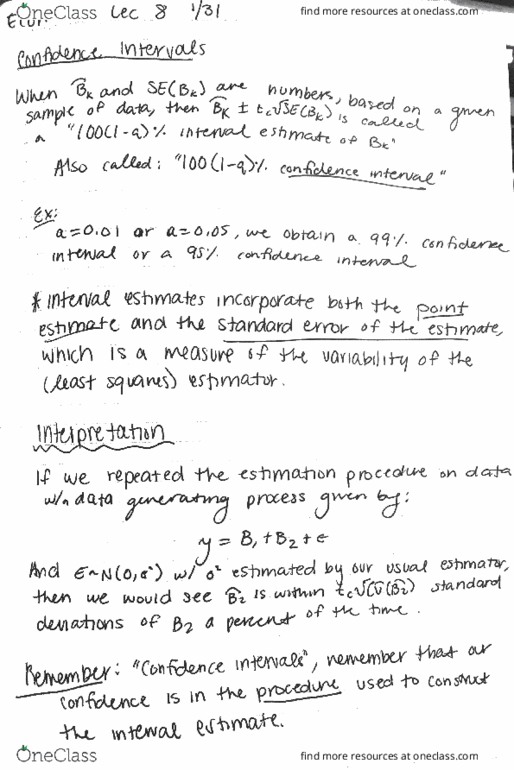 OneClass Lec 8 1/31 find more resources at oneclass.com
Econ
Confidence Intervals
When B̂k and SE(Bk) are numbers, based on a given
sample of data, then B̂k ± tc√SE(Bk) is called
a "100(1-a)% interval estimate of Bk"
Also called: "100(1-a)% confidence interval"
Ex:
a=0.01 or a=0.05, we obtain a 99% confidence
interval or a 95% confidence interval
* interval estimates incorporate both the point
estimate and the standard error of the estimate,
which is a measure of the variability of the
(least squares) estimator.
Interpretation
If we repeated the estimation procedure on data
w/a data generating process given by:
y = B1 + B2 + e
And E~N(0,σ²) w/ σ² estimated by our usual estimator,
then we would see B̂2 is within tc√(V̂(B̂2) standard
deviations of B2 a percent of the time.
Remember: "Confidence intervals", remember that our
confidence is in the procedure used to construct
the interval estimate.
OneClass find more resources at oneclass.com